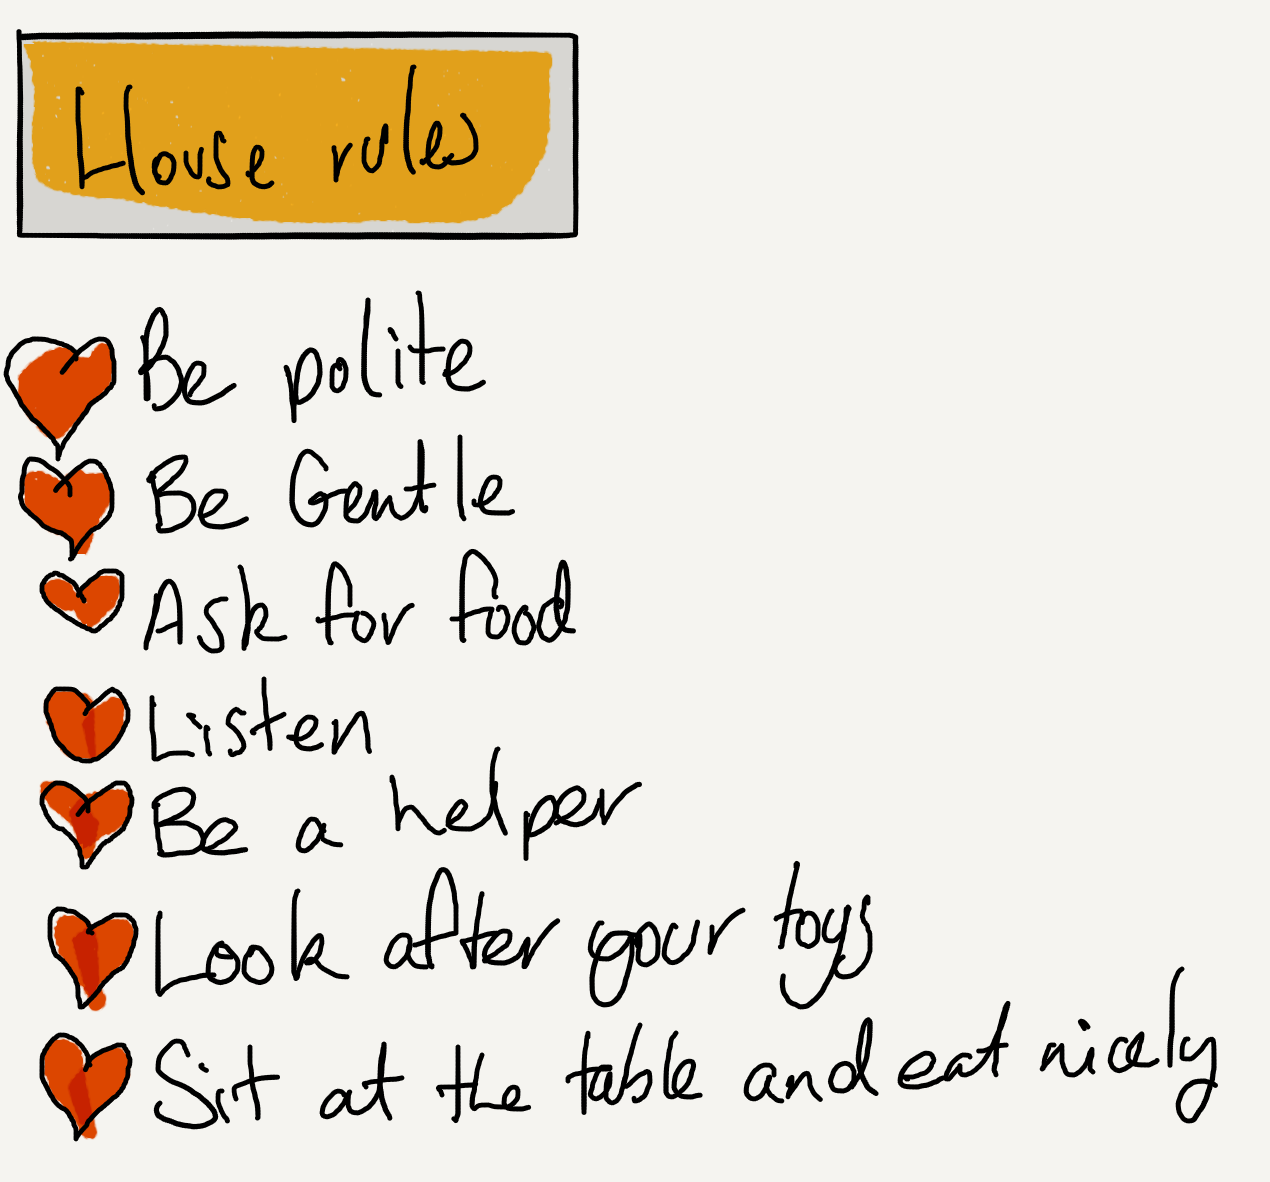 House rules
Be polite
Be Gentle
Ask for food
Listen
Be a helper
Look after your toys
Sit at the table and eat nicely